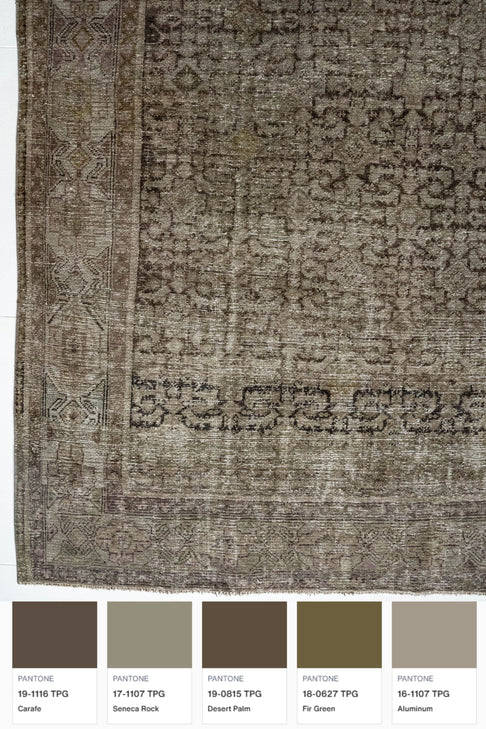 PANTONE
19-1116 TPG
Carafe
PANTONE
17-1107 TPG
Seneca Rock
PANTONE
19-0815 TPG
Desert Palm
PANTONE
18-0627 TPG
Fir Green
PANTONE
16-1107 TPG
Aluminum